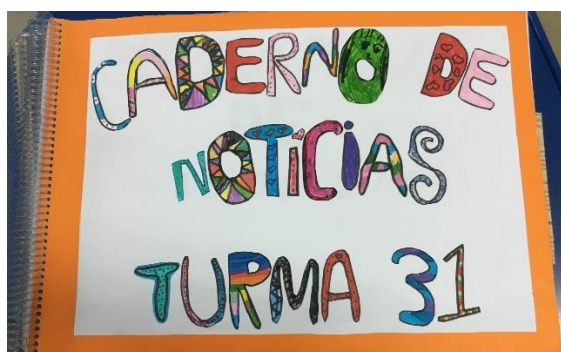 CADERNO DE
NOTÍCIAS
TURMA 31